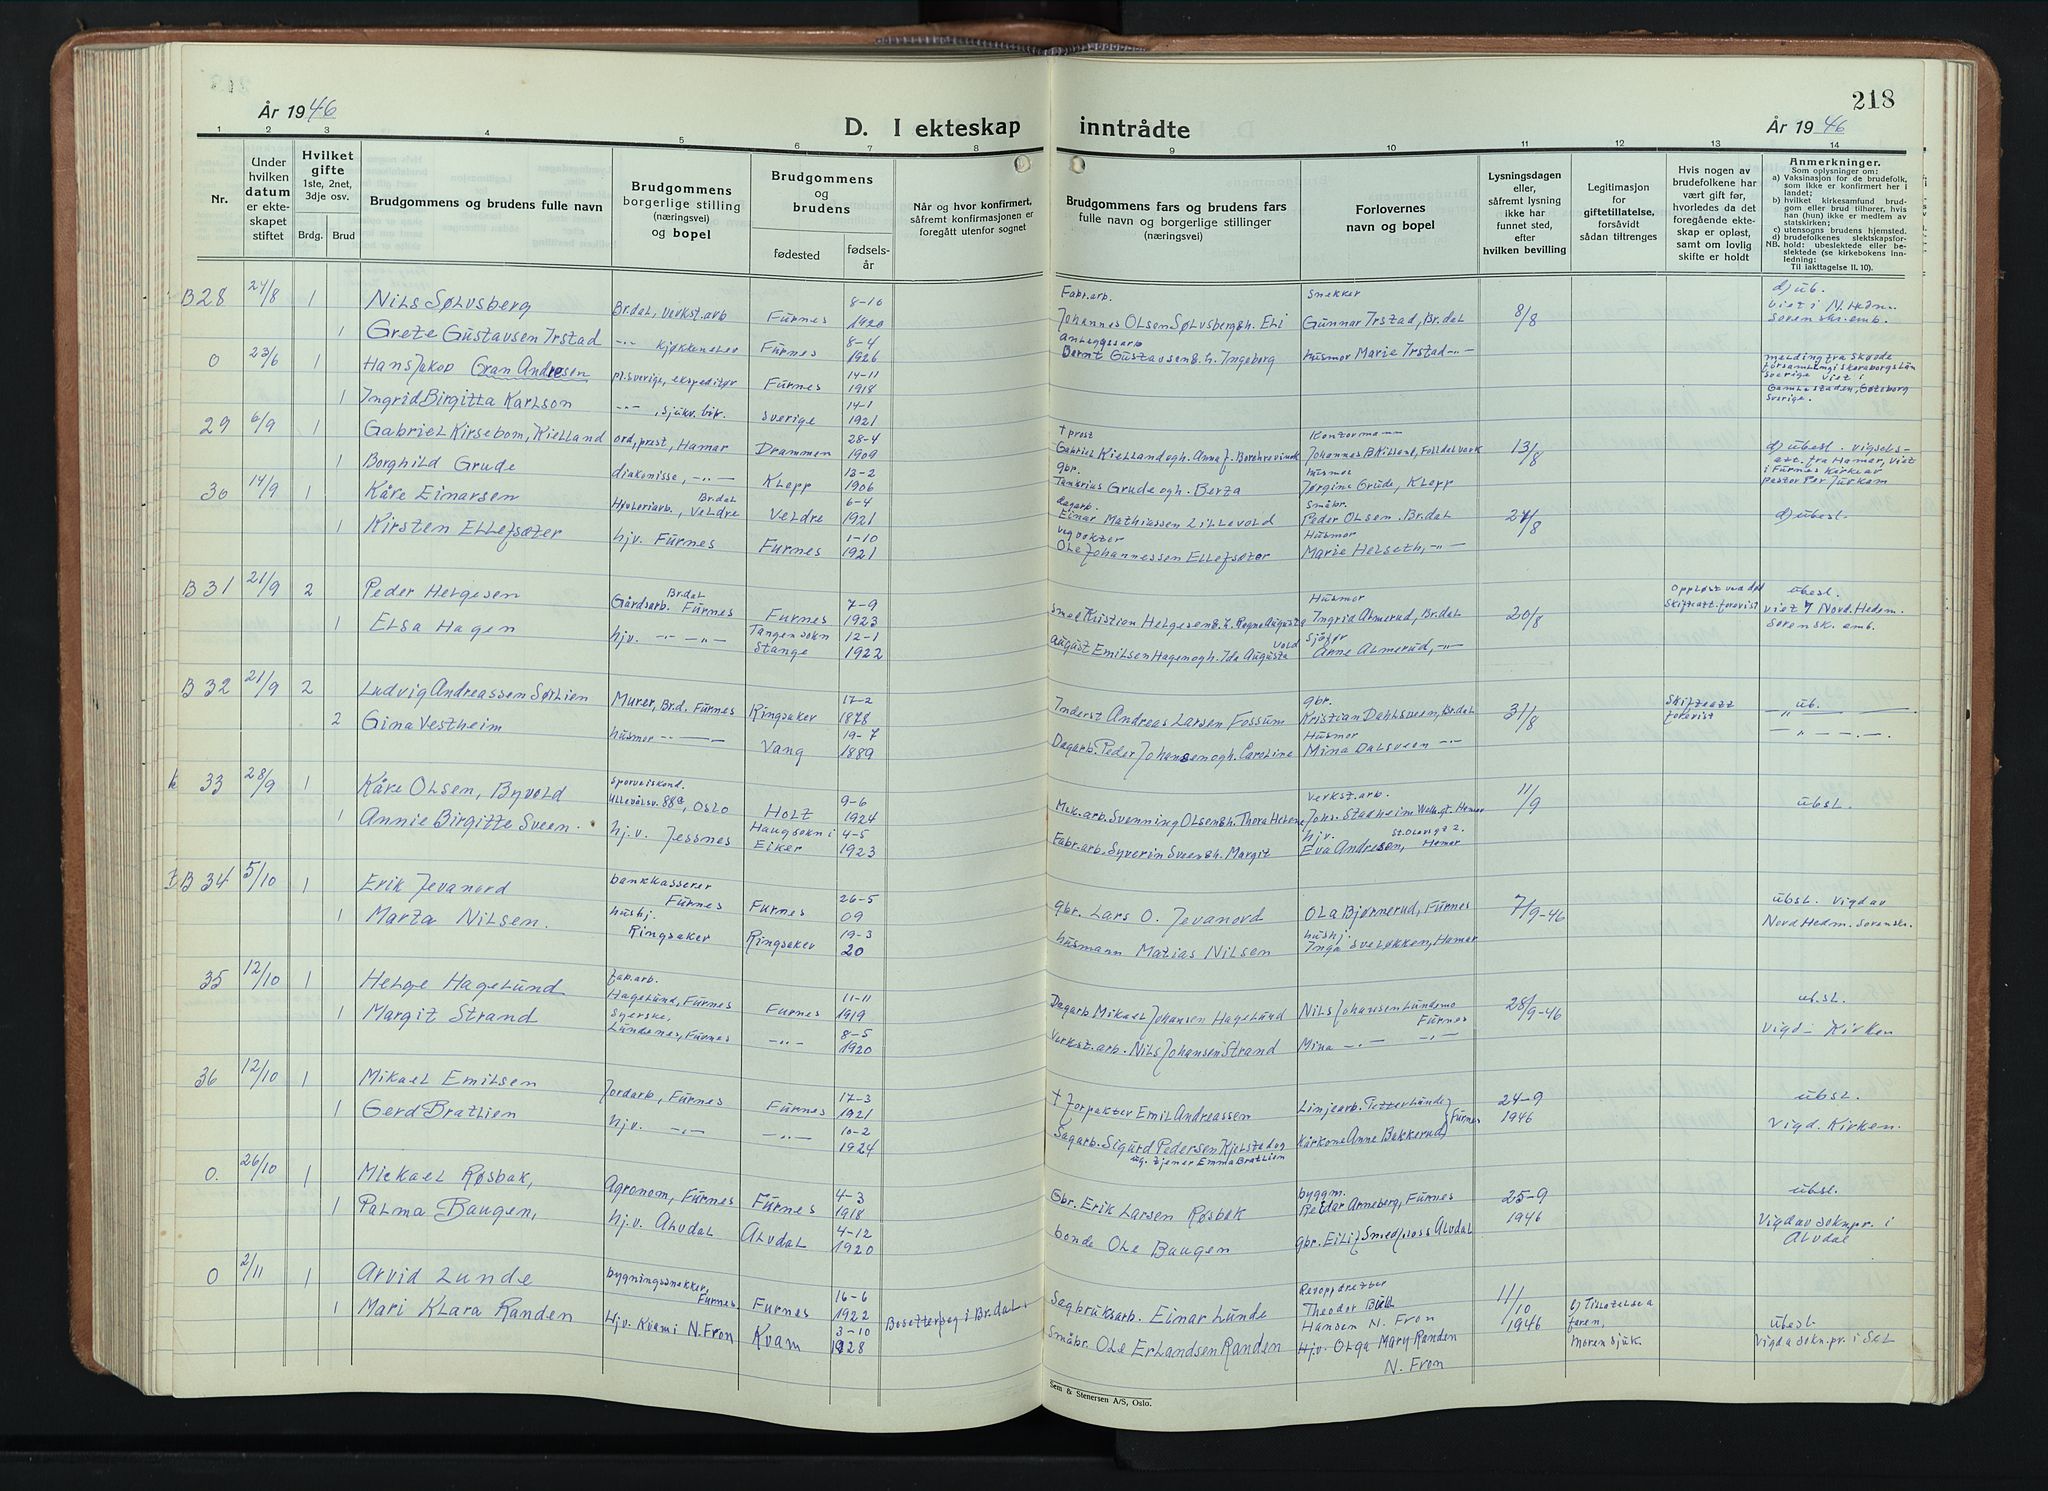 218
År 1946
D. I ekteskap inntrådte
År 1946
1 2 3 4 5 6 7 8 9 10 11 12 13 14
Nr.
Under hvilken datum er ekteskapet stiftet
Hvilket gifte
1ste, 2net, 3dje osv.
Brdg. Brud
Brudgommens og brudens fulle navn
Brudgommens borgerlige stilling (næringsvei) og bopel
Brudgommens og brudens
fødested
fødselsår
Når og hvor konfirmert, såfremt konfirmasjonen er foregått utenfor sognet
Brudgommens fars og brudens fars fulle navn og borgerlige stillinger (næringsvei)
Forlovernes navn og bopel
Lysningsdagen eller, såfremt lysning ikke har funnet sted, efter hvilken bevilling
Legitimasjon for giftetillatelse, forsåvidt sådan tiltrenges
Hvis nogen av brudefolkene har vært gift før, hvorledes da det foregående ekteskap er opløst, samt om lovlig skifte er holdt
Anmerkninger.
Som oplysninger om:
a) Vaksinasjon for de brudefolk, som ikke er konfirmert her i landet;
b) hvilket kirkesamfund brudgom eller brud tilhører, hvis han (hun) ikke er medlem av statskirken;
c) utensogns brudens hjemsted.
d) brudefolkenes slektskapsforhold: ubeslektede eller beslektede (se kirkebokens innledning;
NB.
Til iakttagelse II. 10).
B 28 27/8 1 Nils Sølvsberg Br.dal, verkst.arb Furnes 8-10 1920 Fabr.arb. Johannes Olsen Sølvsberg & h. Eli Snekker Gunnar Irstad, Br.dal 8/8 d) ub. viet i N. Hedm. Sorenskr. emb.
1 Grete Gustavsen Irstad -"- kjøkkenelev Furnes 8-4 1926 anleggsarb Bernt Gustavsen & h. Ingeborg husmor Marie Irstad -"-
0 23/6 1 Hans Jakop Gran Andresen pt. Sverige, ekspeditør Furnes 14-11 1918 melding fra Skøvde forsamling i Skaraborgs län Sverige viet i Gamlestaden, Gøteborg Sverige.
1 Ingrid Birgitta Karlson -"-, sjukv. bitr. Sverige 14-1 1921
29 6/9 1 Gabriel Kirsebom, Kielland ord, prest, Hamar Drammen 28-4 1909 † prost Gabriel Kielland og h. Anna f. Borchrevinck Kontormann Johannes B Killand, Folldal verk 13/8 d) ubesl. vigsels-att. fra Hamar, viet i Furnes Kirke av pastor Per Jurkam
1 Borghild Grude diakonisse, -"- Klepp 13-2 1906 gbr. Tankrius Grude og h. Berta husmor Jørgine Grude, Klepp
30 14/9 1 Kåre Einarsen Høvleriarb., Br.dal Veldre Veldre 6-4 1921 dagarb. Einar Mathiassen Lillevold Småbr. Peder Olsen. Br.dal 27/8 d) ubesl.
1 Kirsten Ellefsæter hjv. Furnes Furnes 1-10 1921 vegvokter Ole Johannessen Ellefsæter Husmor Marie Helseth, -"-
B 31 21/9 2 Peder Helgesen Gårdsarb. Br.dal Furnes Furnes 7-9 1923 smed Kristian Helgesen & h. Ragna Augusta Husmor Ingrid Almerud, Br.dal 20/8 Oppløst ved død Skifteatt. forevist ubesl. viet i Nord. Hedm. Sorensk. emb.
1 Elsa Hagen hjv. -"- -"- Tangen sokn Stange 12-1 1922 August Emilsen Hagen og h. Ida Augusta Vold Sjåfør Arne Almerud, -"-
B 32 21/9 2 Ludvig Andreassen Sørlien Murer, Br.d. Furnes Ringsaker 17-2 1878 Inderst Andreas Larsen Fossum gbr. Kristian Dahlsveen, Br.dal 31/8 Skifteatt forevist ub. -"-
2 Gina Vestheim husmor -"- Vang 19-7 1889 Dagarb. Peder Johansen og h. Caroline Husmor Mina Dalsveen -"- -"-
k 33 28/9 1 Kåre Olsen, Byvold Sporveiskond. Ullevålsv. 88a, Oslo Holt 9-6 1924 Mek.arb. Svenning Olsen & h. Thora Helene Verkst.arb. Johs. Stadheim Welh.gt. Hamar 11/9 ubsl.
1 Annie Birgitte Sveen. hj.v. Jessnes Haug sokn i Eiker 4-5 1923 Fabr.arb. Syverin Sveen & h. Margit hjv. St. Olavsgt 2. Eva Andresen, Hamar
B 34 5/10 1 Erik Jevanord bankkasserer Furnes Furnes 26-5 09 gbr. Lars O. Jevanord Ola Bjørnerud, Furnes 7/9-46 ubsl. Vigd av Nord Hedm. Sorenskr.
1 Marta Nilsen. hushj. Ringsaker Ringsaker 19-3 20 husmann Matias Nilsen hushj. Inga Sveløkken, Hamar
35 12/10 1 Helge Hagelund fab.arb. Hagelund, Furnes Furnes 11-11 1919 Dagarb Mikael Johansen Hagelund Nils Johansen Lundemo Furnes 28/9-46 ubsl. Vigd i Kirken
1 Margit Strand Syerske, Lundenes, Furnes -"- 8-5 1920 Verkst.arb. Nils Johansen Strand Mina -"- -"-
36 12/10 1 Mikael Emilsen Jordarb, Furnes Furnes 17-3 1921 † Forpakter Emil Andreassen Linjearb. Petter Lunde } Furnes 24-9 1946 ubsl. Vigd. Kirken.
1 Gerd Bratlien hjv. -"- -"- 10-2 1924 Sagarb. Sigurd Pedersen Kjelstad og ug. tjener Emma Bratlien Kårkone Anne Bakkerud
0. 26/10 1 Mickael Røsbak, Agronom, Furnes Furnes 4-3 1918 Gbr. Erik Larsen Røsbak byggm. Reidar Arneberg, Furnes 25-9 1946 ubsl. Vigd av sokn.pr. i Alvdal
1 Palma Baugen, hj.v. Alvdal Alvdal 4-12 1920 bonde Ole Baugen gbr. Eilif Smedplass Alvdal
0 2/11 1 Arvid Lunde bygningssnekker, Furnes Furnes 16-6 1922 Sagbruksarb. Einar Lunde Revoppdretter Theodor Bull Hansen N. Fron 11/10 1946 b) Tillatelse a faren, moren sjuk. ubesl. Vigd a sokn.pr. i Sel
1 Mari Klara Randen Hjv. Kvam i N. Fron Kvam 3-10 1928 Bosetter seg i Br.dal. Småbr. Ole Erlandsen Randen Hjv. Olga Mary Randen N. Fron
Sem & Stenersen A/S, Oslo.